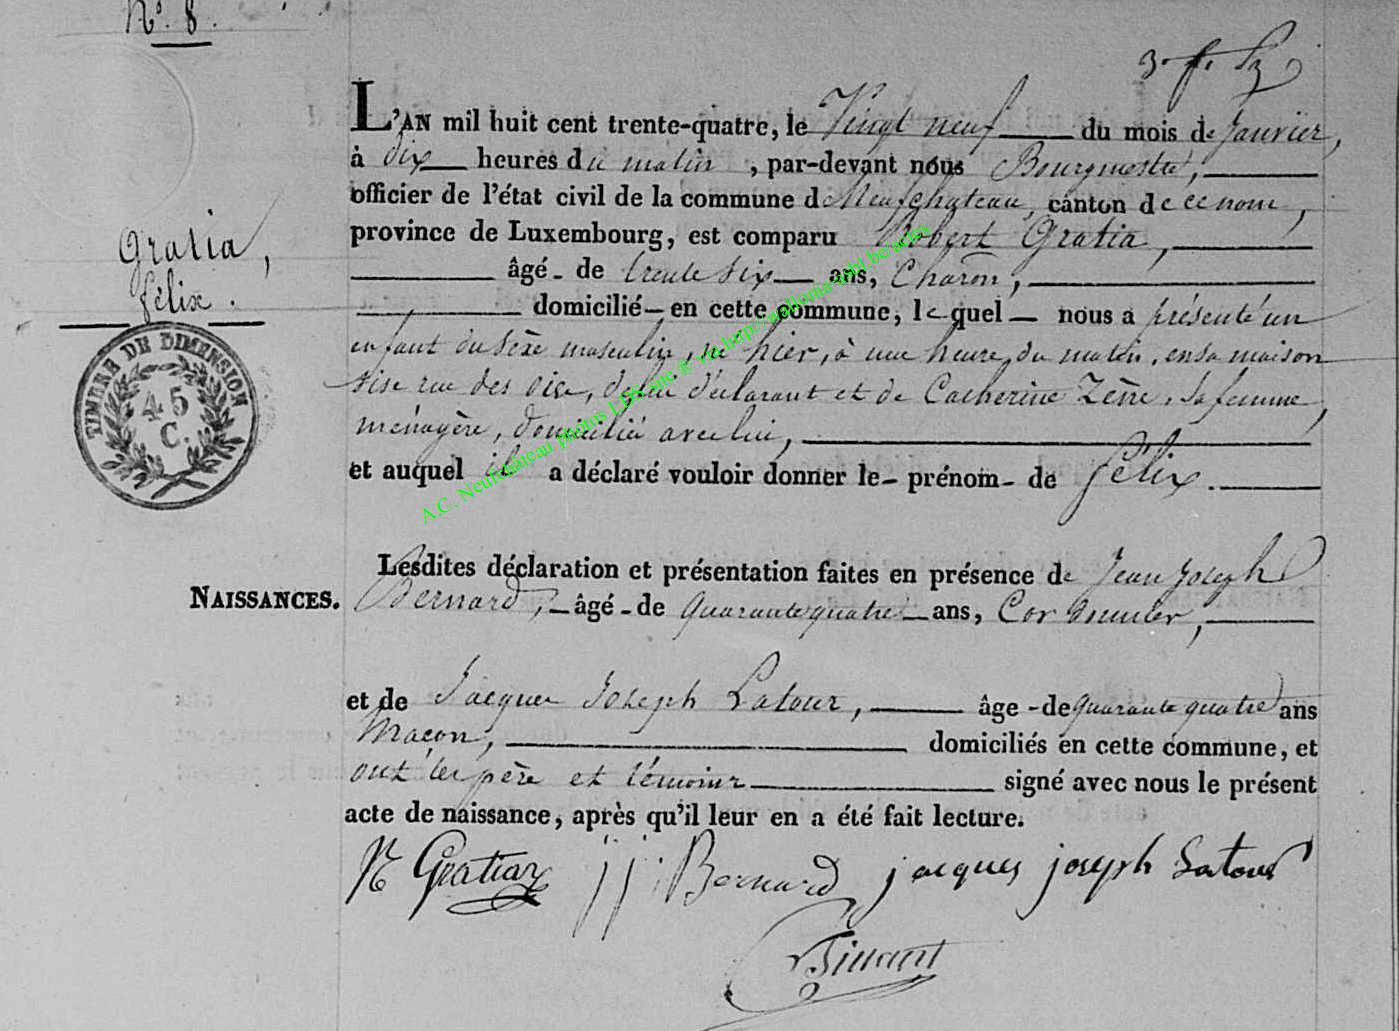 N.º 8.
3. f.
L'AN mil huit cent trente-quatre, le Vingt neuf du mois de Janvier,
à dix heures du matin, par-devant nous Bourgmestre,
officier de l'état civil de la commune de Neufchateau, canton de ce nom,
province de Luxembourg, est comparu Robert Gratia,
Gratia,
félix.
âgé de trente six ans, Charon,
domicilié en cette commune, lequel nous a présenté un
enfant du sexe masculin, né hier, à une heure du matin, en sa maison
sise rue des oies, de lui déclarant et de Catherine Zèvre, sa femme,
ménagère, domiciliée avec lui,
et auquel il a déclaré vouloir donner le prénom de félix.
TIMBRE DE DIMENSION
45
C.
A.C. Neufchâteau photos LDS site
NAISSANCES.
Lesdites déclaration et présentation faites en présence de Jean Joseph
Bernard, âgé de quarante quatre ans, Cordonnier,
et de Jacques Joseph Latour, âgé de quarante quatre ans
Maçon, domiciliés en cette commune, et
ont les père et témoins signé avec nous le présent
acte de naissance, après qu'il leur en a été fait lecture.
R Gratia jj Bernard jacques joseph Latour